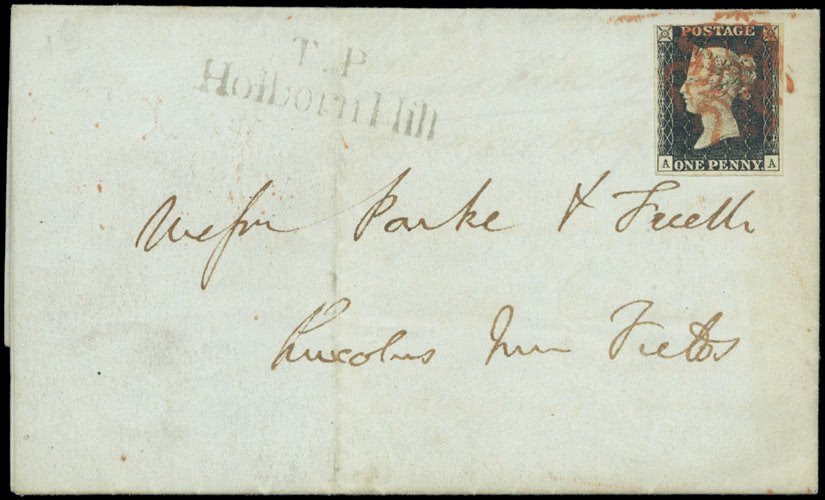 T.P
Holborn Hill
POSTAGE
A ONE PENNY A
Messrs Parke & Freeth
Lincolns Inn Fields